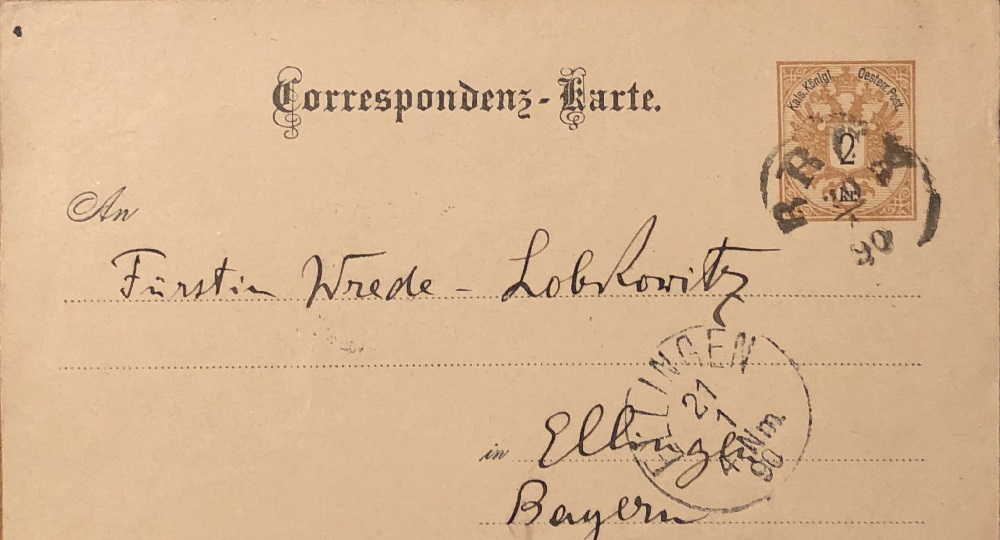 Correspondenz-Karte.
Kais. Königl. Oesterr. Post.
2
kr.
20
90
An
Fürstin Wrede - Lobkowitz
ELLINGEN
21
7
4 Nm.
90
in Ellingen
Bayern